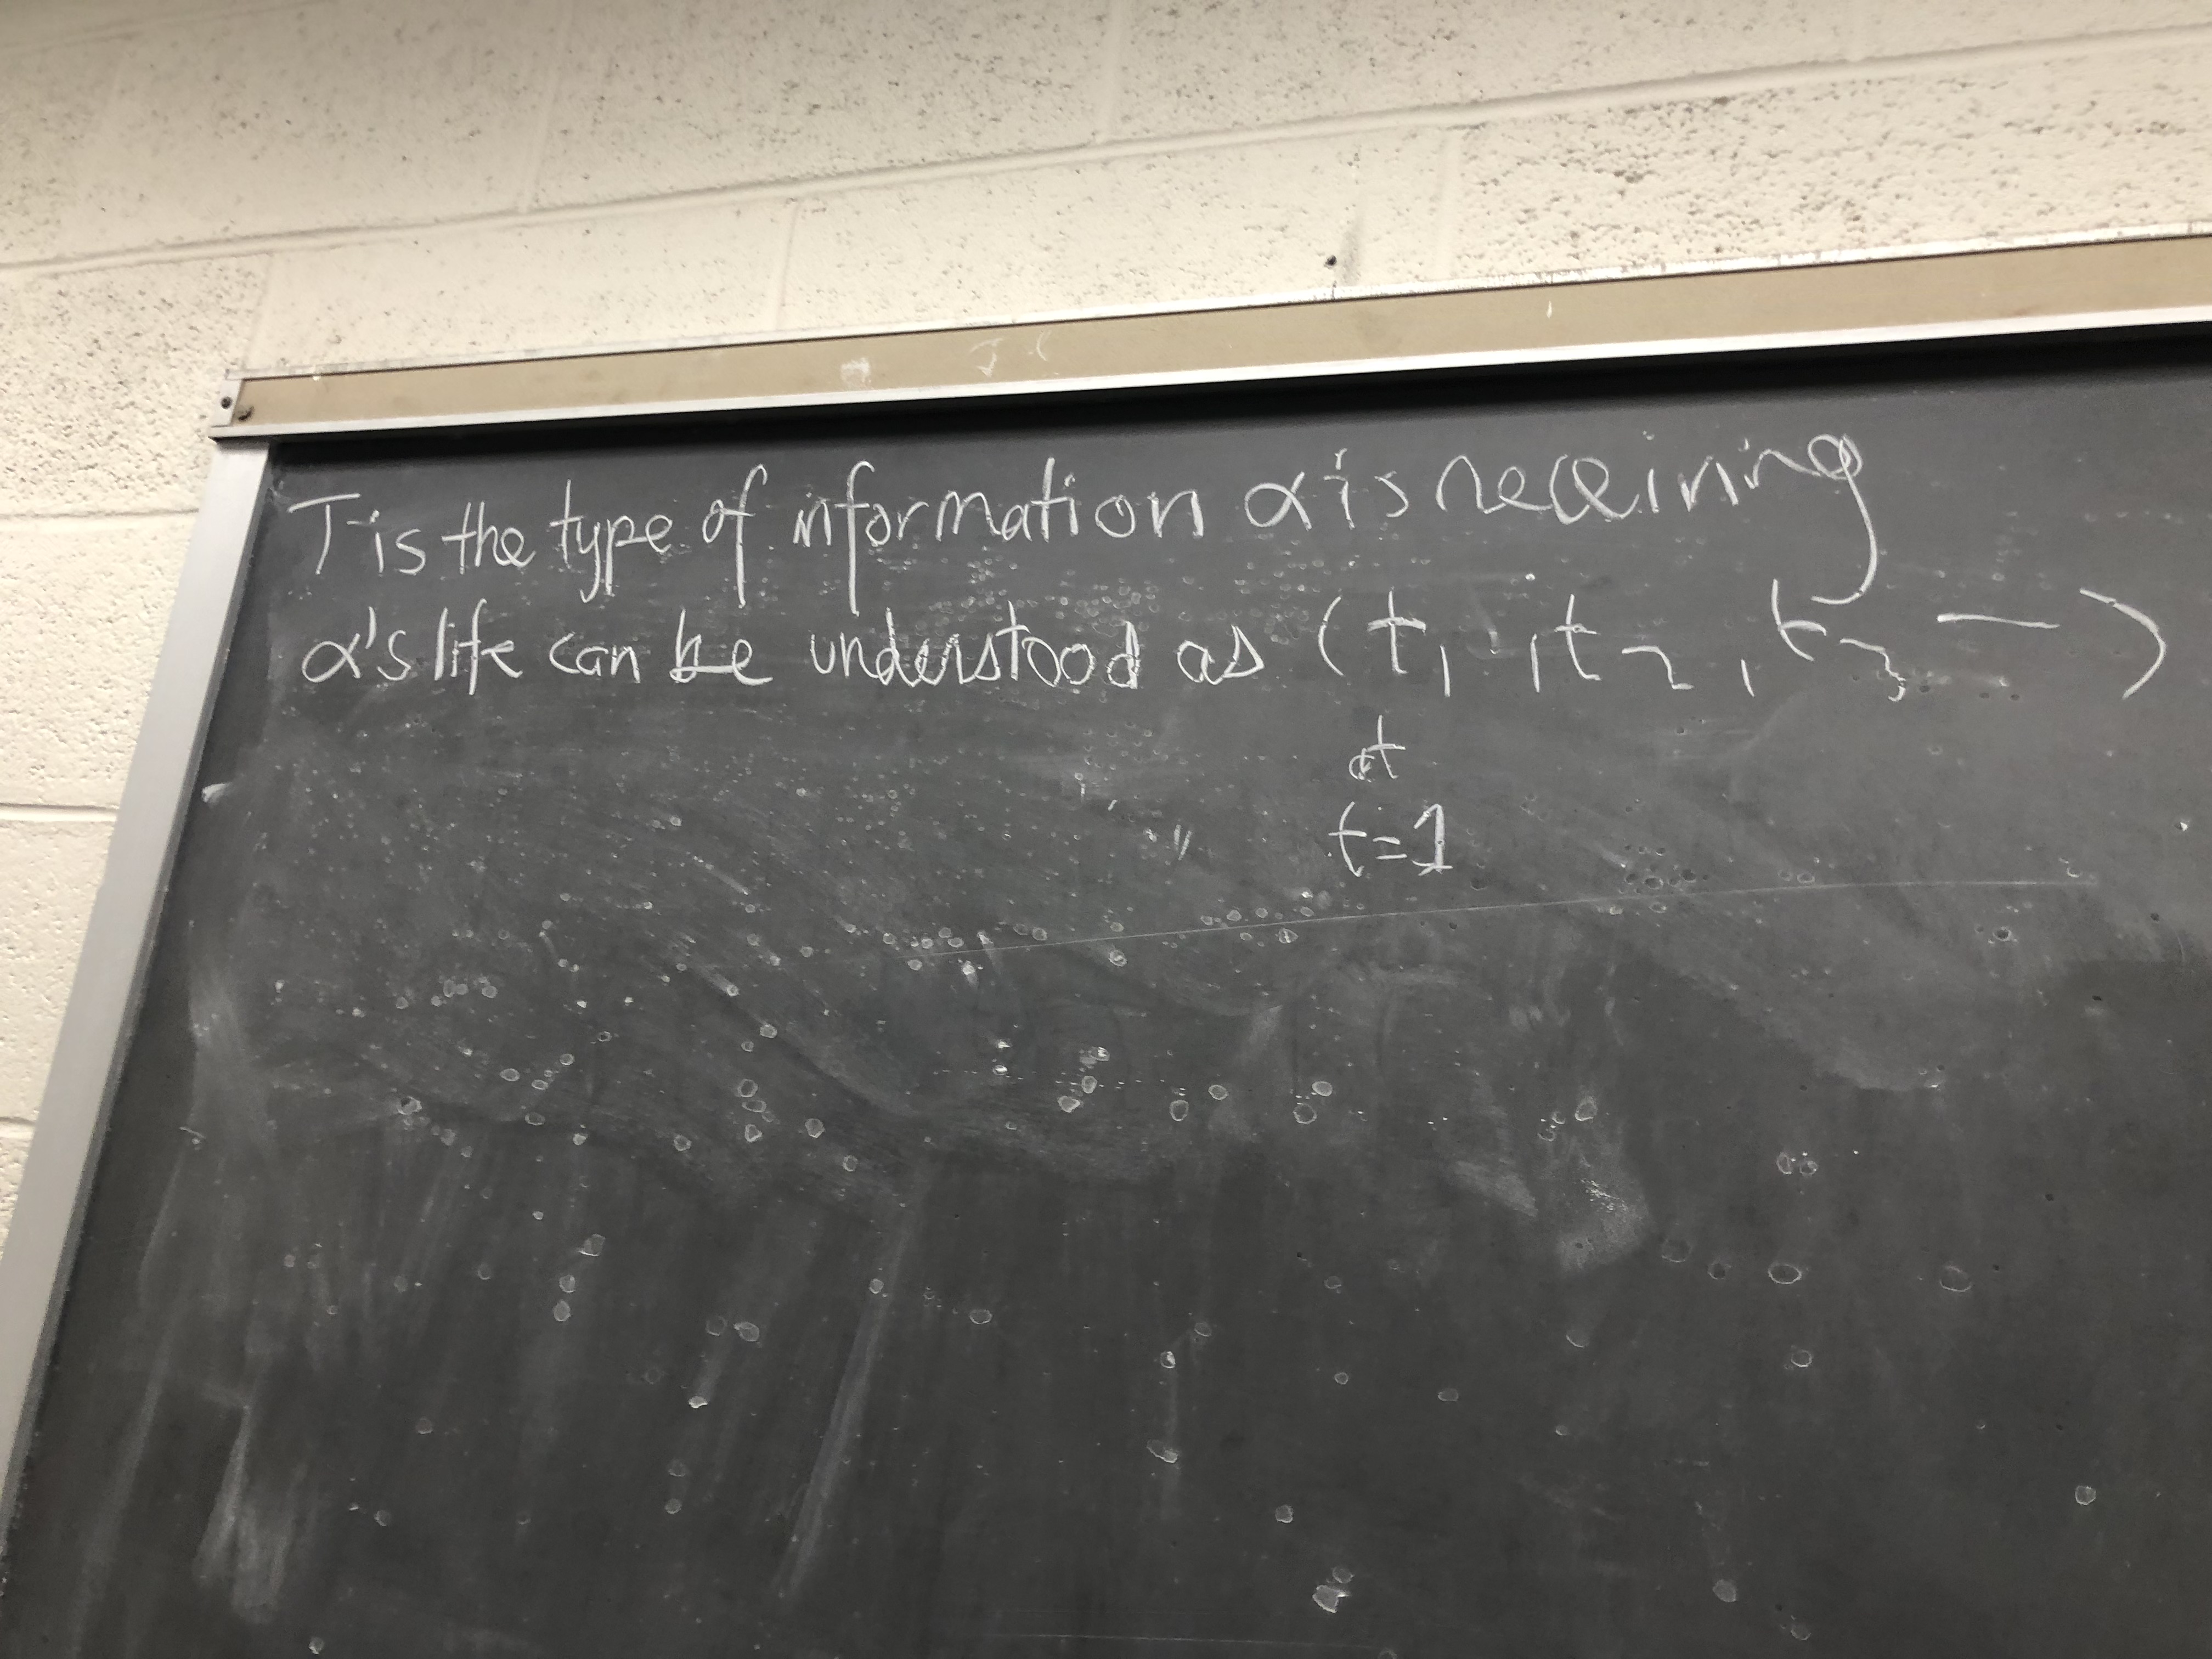 T is the type of information α is receiving
α's life can be understood as (t₁, t₂, t₃ — )
at
t=1